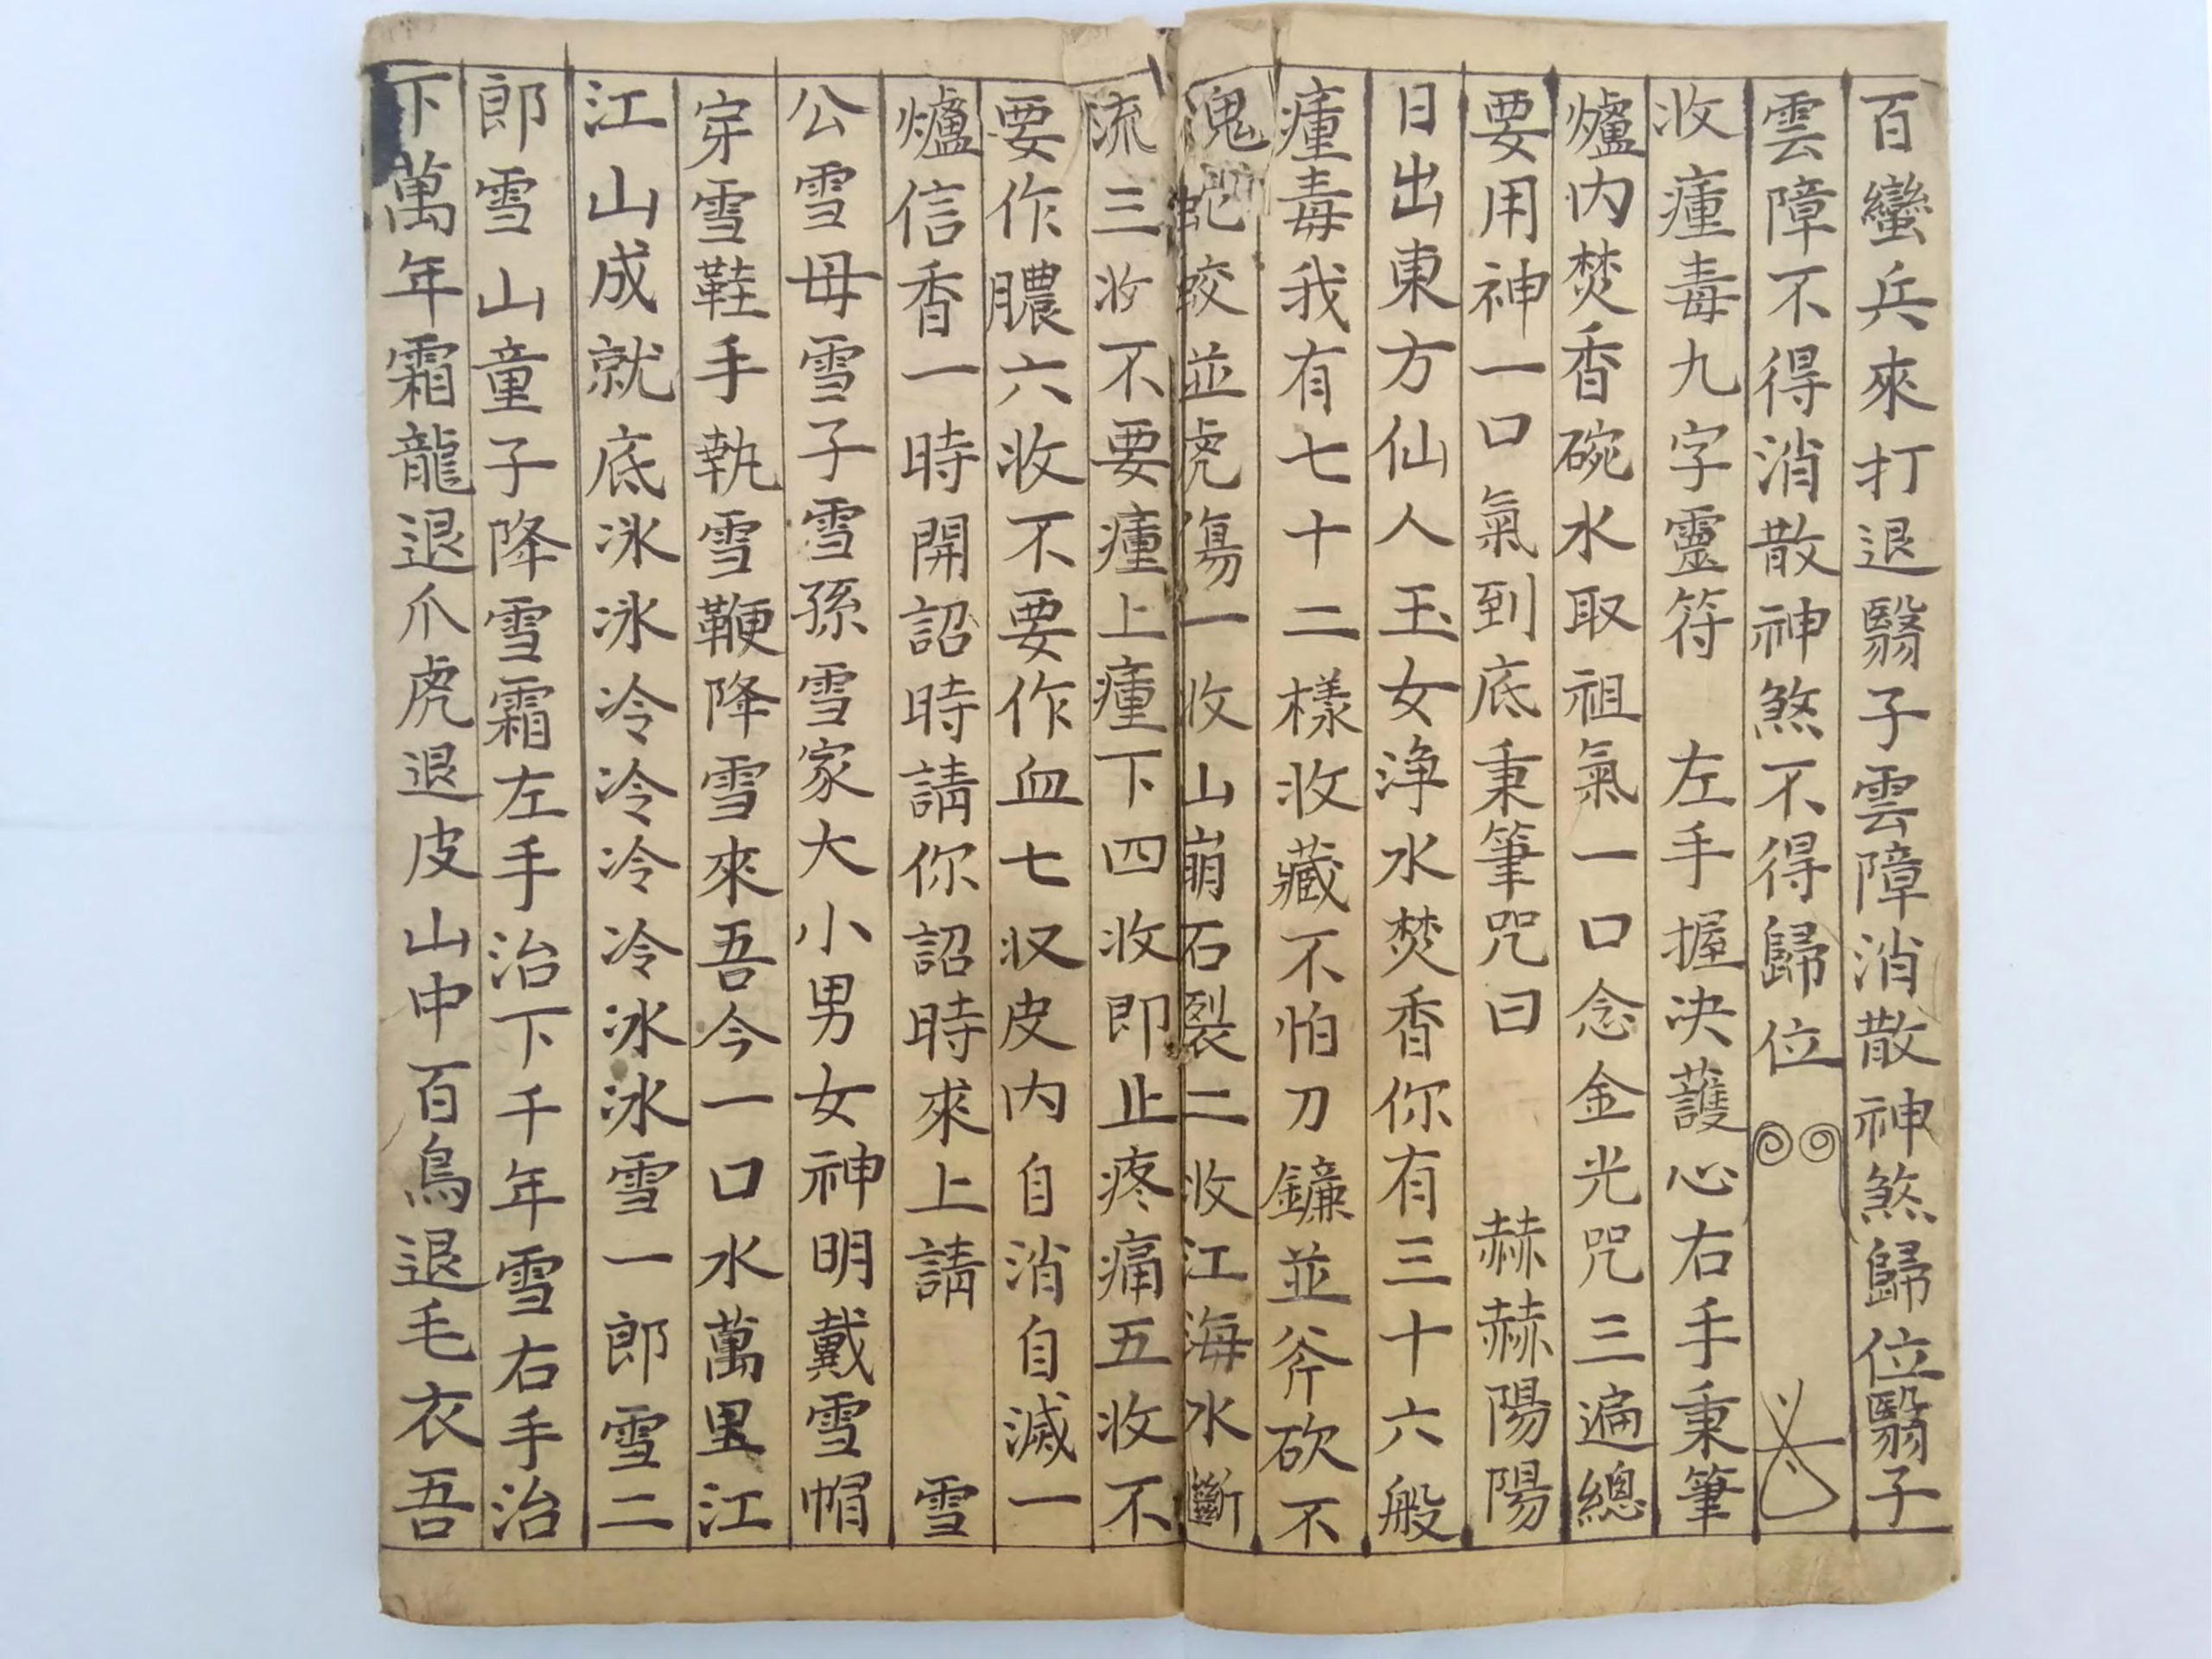 百蠻兵來打退翳子雲障消散神煞歸位翳子
雲障不得消散神煞不得歸位
收瘇毒九字靈符　左手握决護心右手秉筆
爐內焚香碗水取祖氣一口念金光咒三遍總
要用神一口氣到底秉筆咒曰　赫赫陽陽
日出東方仙人玉女浄水焚香你有三十六般
瘇毒我有七十二樣收藏不怕刀鐮並斧砍不
蛇蛟並虎傷一收山崩石裂二收江海水斷
流三收不要瘇上瘇下四收即止疼痛五收不
要作膿六收不要作血七収皮内自消自滅一
爐信香一時開詔時請你詔時來上請　雪
公雪母雪子雪孫雪家大小男女神明戴雪帽
穿雪鞋手執雪鞭降雪來吾今一口水萬里江
江山成就底冰冰冷冷冷冷冰冰雪一郎雪二
郎雪山童子降雪霜左手治下千年雪右手治
下萬年霜龍退爪虎退皮山中百鳥退毛衣吾